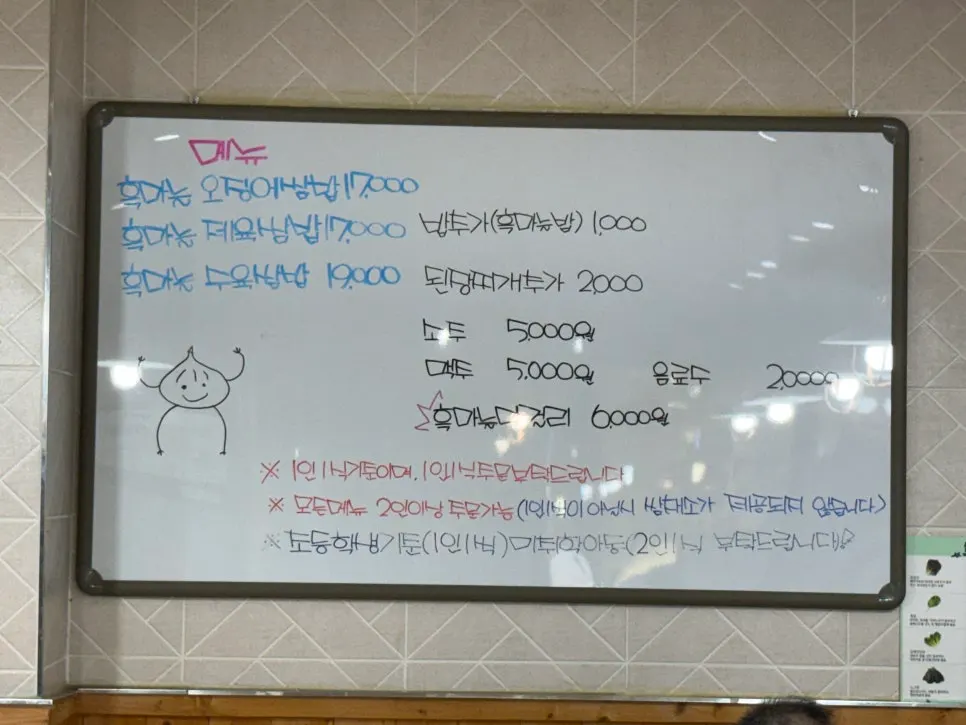 메뉴
흑마늘 오징어쌈밥 17,000
흑마늘 제육쌈밥 17,000 밥추가(흑마늘밥) 1,000
흑마늘 수육쌈밥 19,000 된장찌개추가 2,000
소주 5,000원
맥주 5,000원 음료수 2,000원
흑마늘막걸리 6,000원
※ 1인1식기준이며, 1인1식주문부탁드립니다
※ 모든메뉴 2인이상 주문가능 (1인1식이 아닐시 쌈채소가 제공되지 않습니다)
※ 초등학생기준(1인1식) 미취학아동(2인1식 부탁드립니다)